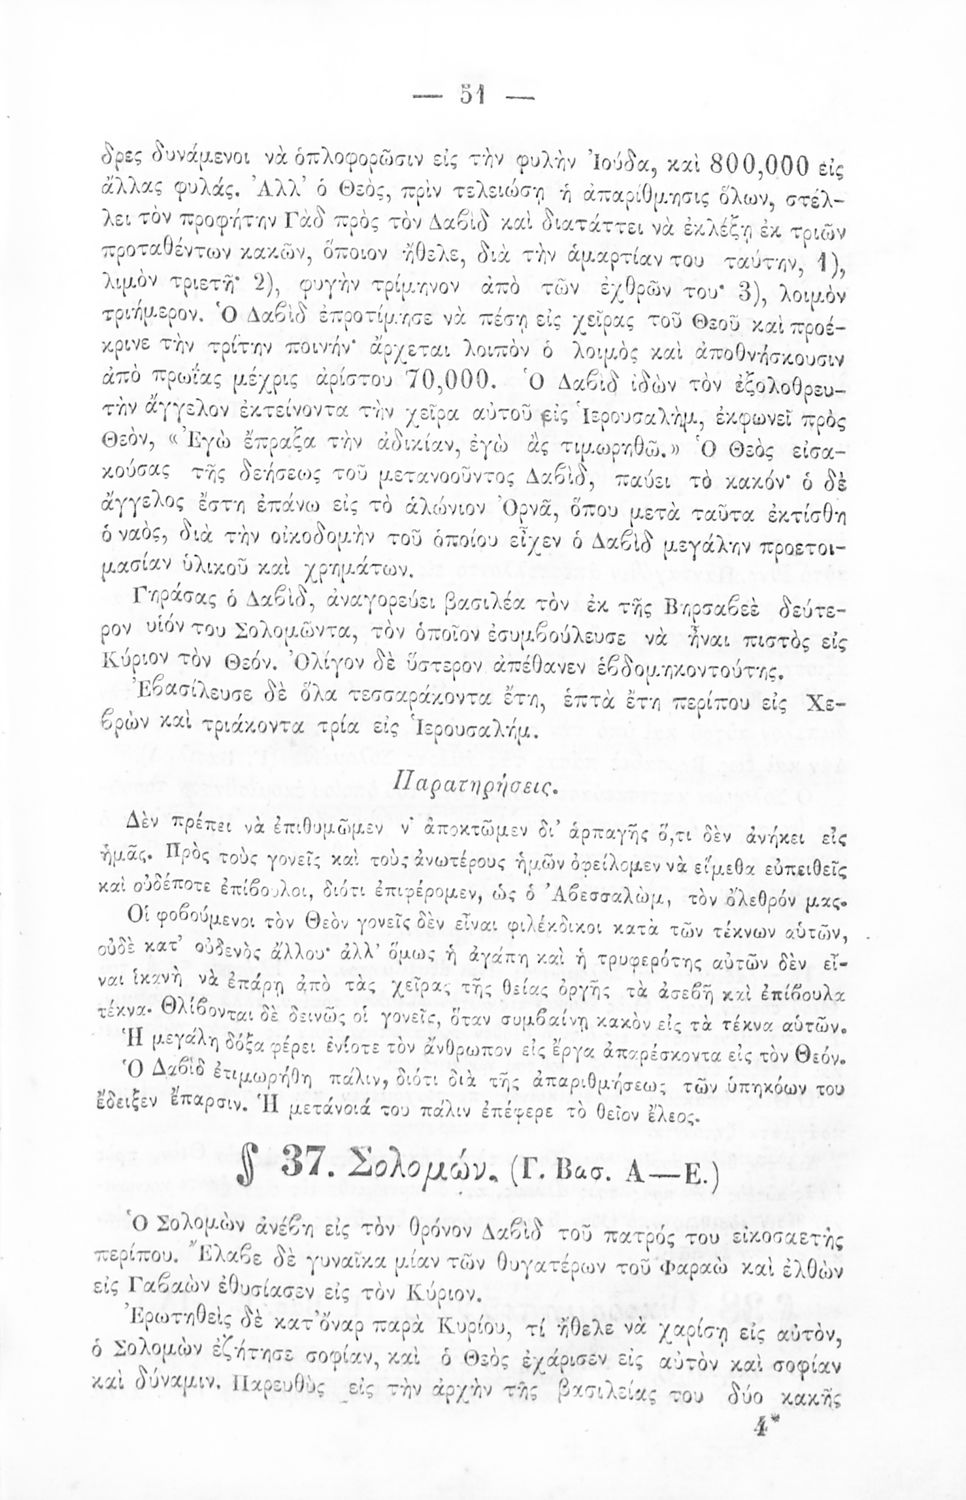 — 51 —
δρες δυνάμενοι νὰ ὁπλοφορῶσιν εἰς τὴν φυλὴν Ἰούδα, καὶ 800,000 εἰς
ἄλλας φυλάς. Ἀλλ' ὁ Θεὸς, πρὶν τελειώσῃ ἡ ἀπαρίθμησις ὅλων, στέλ-
λει τὸν προφήτην Γὰδ πρὸς τὸν Δαβὶδ καὶ διατάττει νὰ ἐκλέξῃ ἐκ τριῶν
προταθέντων κακῶν, ὅποιον ἤθελε, διὰ τὴν ἁμαρτίαν του ταύτην, 1),
λιμὸν τριετῆ· 2), φυγὴν τρίμηνον ἀπὸ τῶν ἐχθρῶν του· 3), λοιμὸν
τριήμερον. Ὁ Δαβὶδ ἐπροτίμησε νὰ πέσῃ εἰς χεῖρας τοῦ Θεοῦ καὶ προέ-
κρινε τὴν τρίτην ποινήν· ἄρχεται λοιπὸν ὁ λοιμὸς καὶ ἀποθνήσκουσιν
ἀπὸ πρωΐας μέχρις ἀρίστου 70,000. Ὁ Δαβὶδ ἰδὼν τὸν ἐξολοθρευ-
τὴν ἄγγελον ἐκτείνοντα τὴν χεῖρα αὐτοῦ εἰς Ἱερουσαλὴμ, ἐκφωνεῖ πρὸς
Θεὸν, «Ἐγὼ ἔπραξα τὴν ἀδικίαν, ἐγὼ ἂς τιμωρηθῶ.» Ὁ Θεὸς εἰσα-
κούσας τῆς δεήσεως τοῦ μετανοοῦντος Δαβὶδ, παύει τὸ κακόν· ὁ δὲ
ἄγγελος ἔστη ἐπάνω εἰς τὸ ἁλώνιον Ὀρνᾶ, ὅπου μετὰ ταῦτα ἐκτίσθη
ὁ ναὸς, διὰ τὴν οἰκοδομὴν τοῦ ὁποίου εἶχεν ὁ Δαβὶδ μεγάλην προετοι-
μασίαν ὑλικοῦ καὶ χρημάτων.
Γηράσας ὁ Δαβὶδ, ἀναγορεύει βασιλέα τὸν ἐκ τῆς Βηρσαβεὲ δεύτε-
ρον υἱόν του Σολομῶντα, τὸν ὁποῖον ἐσυμβούλευσε νὰ ἦναι πιστὸς εἰς
Κύριον τὸν Θεόν. Ὀλίγον δὲ ὕστερον ἀπέθανεν ἑβδομηκοντούτης.
Ἐβασίλευσε δὲ ὅλα τεσσαράκοντα ἔτη, ἑπτὰ ἔτη περίπου εἰς Χε-
βρὼν καὶ τριάκοντα τρία εἰς Ἱερουσαλήμ.
Παρατηρήσεις.
Δὲν πρέπει νὰ ἐπιθυμῶμεν ν' ἀποκτῶμεν δι' ἁρπαγῆς ὅ,τι δὲν ἀνήκει εἰς
ἡμᾶς. Πρὸς τοὺς γονεῖς καὶ τοὺς ἀνωτέρους ἡμῶν ὀφείλομεν νὰ εἴμεθα εὐπειθεῖς
καὶ οὐδέποτε ἐπίβουλοι, διότι ἐπιφέρομεν, ὡς ὁ Ἀβεσσαλὼμ, τὸν ὄλεθρόν μας.
Οἱ φοβούμενοι τὸν Θεὸν γονεῖς δὲν εἶναι φιλέκδικοι κατὰ τῶν τέκνων αὑτῶν,
οὐδὲ κατ' οὐδενὸς ἄλλου· ἀλλ' ὅμως ἡ ἀγάπη καὶ ἡ τρυφερότης αὐτῶν δὲν εἶ-
ναι ἱκανὴ νὰ ἐπάρῃ ἀπὸ τὰς χεῖρας τῆς θείας ὀργῆς τὰ ἀσεβῆ καὶ ἐπίβουλα
τέκνα. Θλίβονται δὲ δεινῶς οἱ γονεῖς, ὅταν συμβαίνῃ κακὸν εἰς τὰ τέκνα αὑτῶν.
Ἡ μεγάλη δόξα φέρει ἐνίοτε τὸν ἄνθρωπον εἰς ἔργα ἀπαρέσκοντα εἰς τὸν Θεόν.
Ὁ Δαβὶδ ἐτιμωρήθη πάλιν, διότι διὰ τῆς ἀπαριθμήσεως τῶν ὑπηκόων του
ἔδειξεν ἔπαρσιν. Ἡ μετάνοιά του πάλιν ἐπέφερε τὸ θεῖον ἔλεος.
§ 37. Σολομών. (Γ. Βασ. Α—Ε.)
Ὁ Σολομὼν ἀνέβη εἰς τὸν θρόνον Δαβὶδ τοῦ πατρός του εἰκοσαετὴς
περίπου. Ἔλαβε δὲ γυναῖκα μίαν τῶν θυγατέρων τοῦ Φαραὼ καὶ ἐλθὼν
εἰς Γαβαὼν ἐθυσίασεν εἰς τὸν Κύριον.
Ἐρωτηθεὶς δὲ κατ' ὄναρ παρὰ Κυρίου, τί ἤθελε νὰ χαρίσῃ εἰς αὐτὸν,
ὁ Σολομὼν ἐζήτησε σοφίαν, καὶ ὁ Θεὸς ἐχάρισεν εἰς αὐτὸν καὶ σοφίαν
καὶ δύναμιν. Παρευθὺς εἰς τὴν ἀρχὴν τῆς βασιλείας του δύο κακῆς
4*